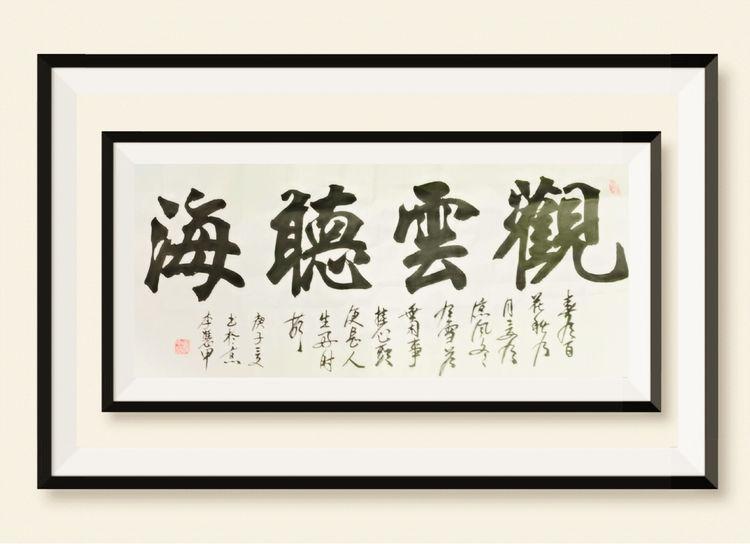 觀雲聽海
春有百
花秋有
月夏有
涼風冬
有雪若
無闲事
挂心頭
便是人
生好时
節
庚子夏
书於京
李慧甲